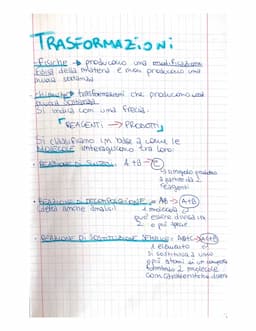 TRASFORMAZIONI
- fisiche → producono una modificazione
della materia e non producono una
nuova sostanza
- chimiche → trasformazioni che producono una
nuova sostanza.
Si indica con una freccia.
"REAGENTI → PRODOTTI"
Si classificano in base a come le
MOLECOLE interagiscono tra loro:
• REAZIONE DI SINTESI: A+B → C
↳ singolo prodotto
a partire da 2
reagenti
• REAZIONE DI DECOMPOSIZIONE: AB → A+B
(detta anche analisi) 1 molecola
può essere divisa in
2 o più specie
• REAZIONE DI SOSTITUZIONE SEMPLICE:
1 elemento
si sostituisce a uno
o più atomi di un composto
2 molecole
con caratteristiche diverse